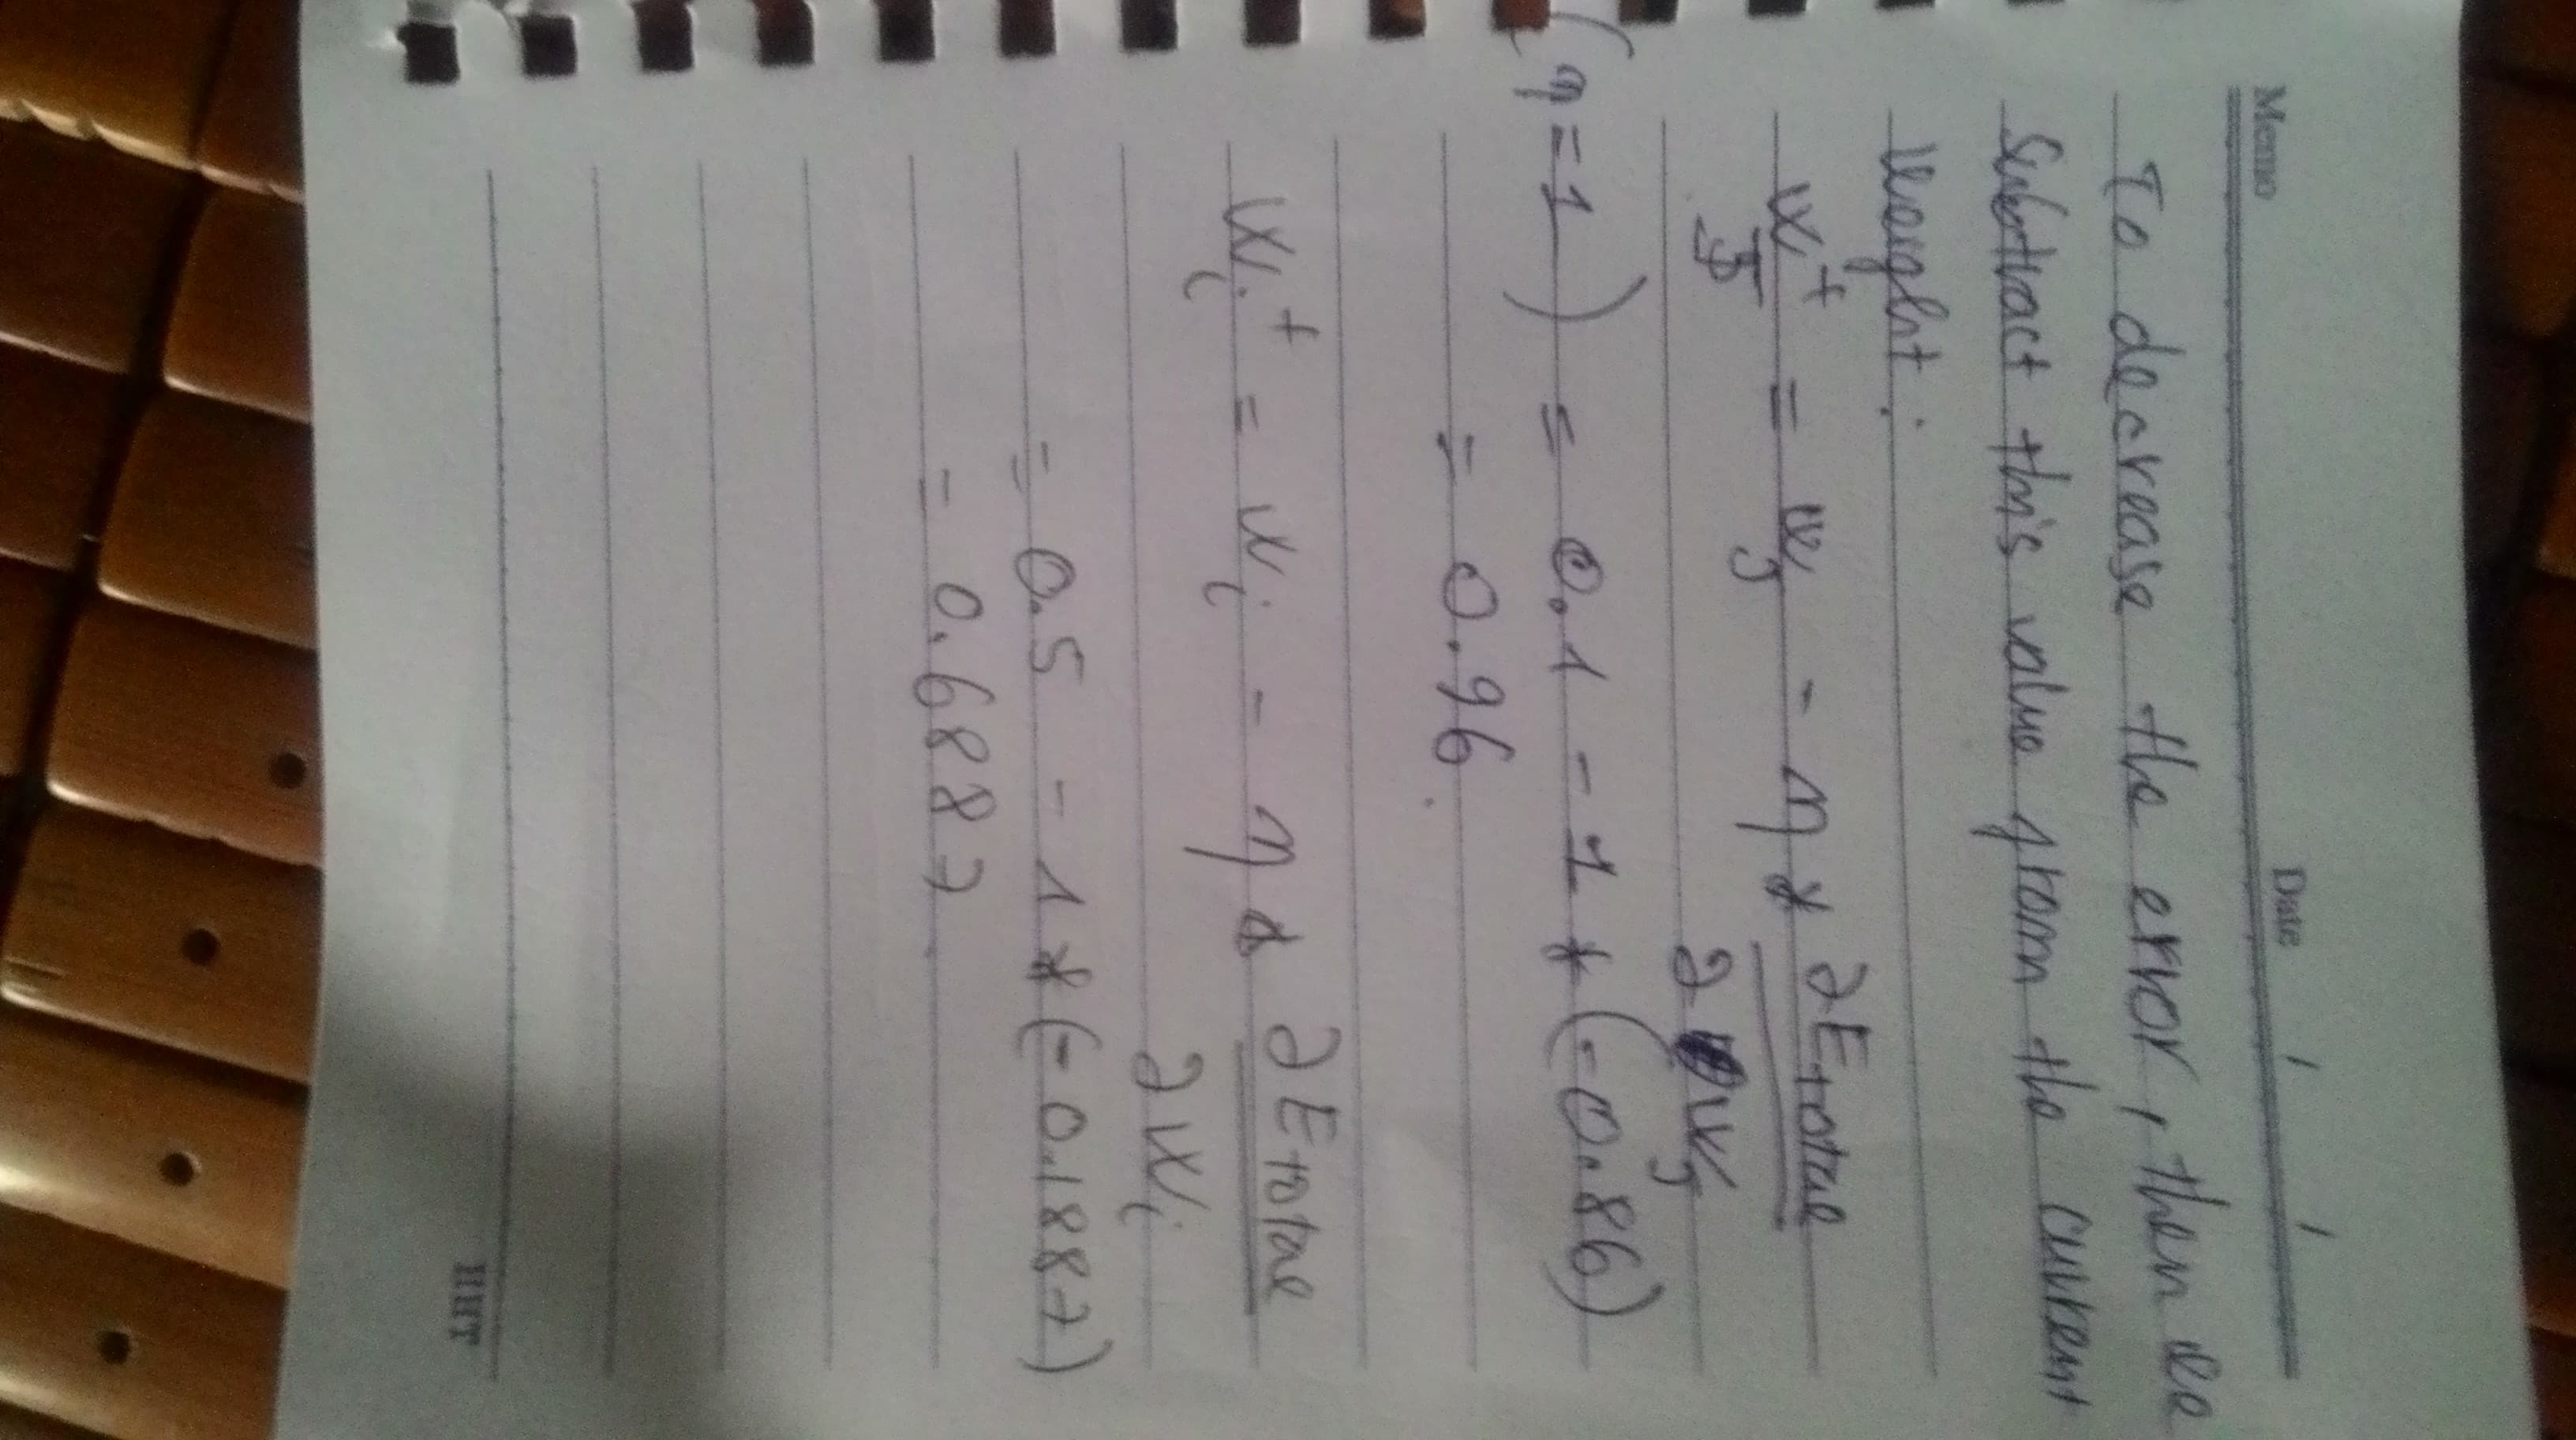 Memo Date / /
To decrease the error, then we
subtract this value from the current
weight.
wj⁺ = wj - η * ∂Etotal / ∂wj
(η = 1) = 0.1 - 1 * (-0.86)
= 0.96.
wi⁺ = wi - η * ∂Etotal / ∂wi
= 0.5 - 1 * (-0.1887)
= 0.6887.